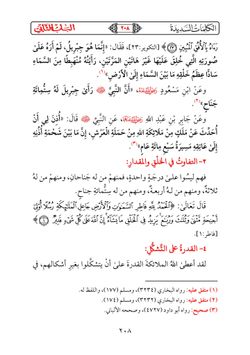 الكلمات السديدة
٢٠٨
رَءَاهُ بِٱلْأُفُقِ ٱلْمُبِينِ ﴾ [التكوير:٢٣]، فَقَال: «إِنَّمَا هُوَ جِبْرِيلُ، لَمْ أَرَهُ عَلَىٰ
صُورَتِهِ الَّتِي خُلِقَ عَلَيْهَا غَيْرَ هَاتَيْنِ المَرَّتَيْنِ، رَأَيْتُهُ مُنْهَبِطًا مِنَ السَّمَاءِ
سَادًّا عِظَمُ خَلْقِهِ مَا بَيْنَ السَّمَاءِ إِلَى الْأَرْضِ»(١).
وعَنْ ابْنِ مَسْعُودٍ: «أَنَّ النَّبِيَّ ﷺ رَأَىٰ جِبْرِيلَ لَهُ سِتُّمِائَةِ
جَنَاحٍ»(٢).
وعَنْ جَابِرِ بْنِ عَبْدِ اللهِ، عَنِ النَّبِيِّ ﷺ قَالَ: «أُذِنَ لِي أَنْ
أُحَدِّثَ عَنْ مَلَكٍ مِنْ مَلَائِكَةِ اللهِ مِنْ حَمَلَةِ الْعَرْشِ، إِنَّ مَا بَيْنَ شَحْمَةِ أُذُنِهِ
إِلَىٰ عَاتِقِهِ مَسِيرَةُ سَبْعِ مِائَةِ عَامٍ»(٣).
٣- التفاوتُ في الخَلْقِ والمقدارِ:
فهم ليسُوا علىٰ درجَةٍ واحدةٍ، فمنهمْ من له جَناحانِ، ومنهمْ من لهُ
ثلاثةٌ، ومنهم من لهُ أربعةٌ، ومنهم من له ستُّمائةِ جناحٍ.
قال تعَالَىٰ: ﴿ٱلْحَمْدُ لِلَّهِ فَاطِرِ ٱلسَّمَٰوَٰتِ وَٱلْأَرْضِ جَاعِلِ ٱلْمَلَٰٓئِكَةِ رُسُلًا أُو۟لِىٓ
أَجْنِحَةٍ مَّثْنَىٰ وَثُلَٰثَ وَرُبَٰعَ يَزِيدُ فِى ٱلْخَلْقِ مَا يَشَآءُ إِنَّ ٱللَّهَ عَلَىٰ كُلِّ شَىْءٍ قَدِيرٌ ﴾
[فاطر:١].
٤- القدرةُ على التَّشكُّلِ:
لقد أعطىٰ اللهُ الملائكةَ القدرةَ علىٰ أنْ يتشكَّلوا بغيرِ أشكالهِم، في
(١) متفق عليه: رواه البخاري (٣٢٣٤)، ومسلم (١٧٧)، واللفظ له.
(٢) متفق عليه: رواه البخاري (٣٢٣٢)، ومسلم (١٧٤).
(٣) صحيح: رواه أبو داود (٤٧٢٧)، وصححه الألباني.
٢٠٨